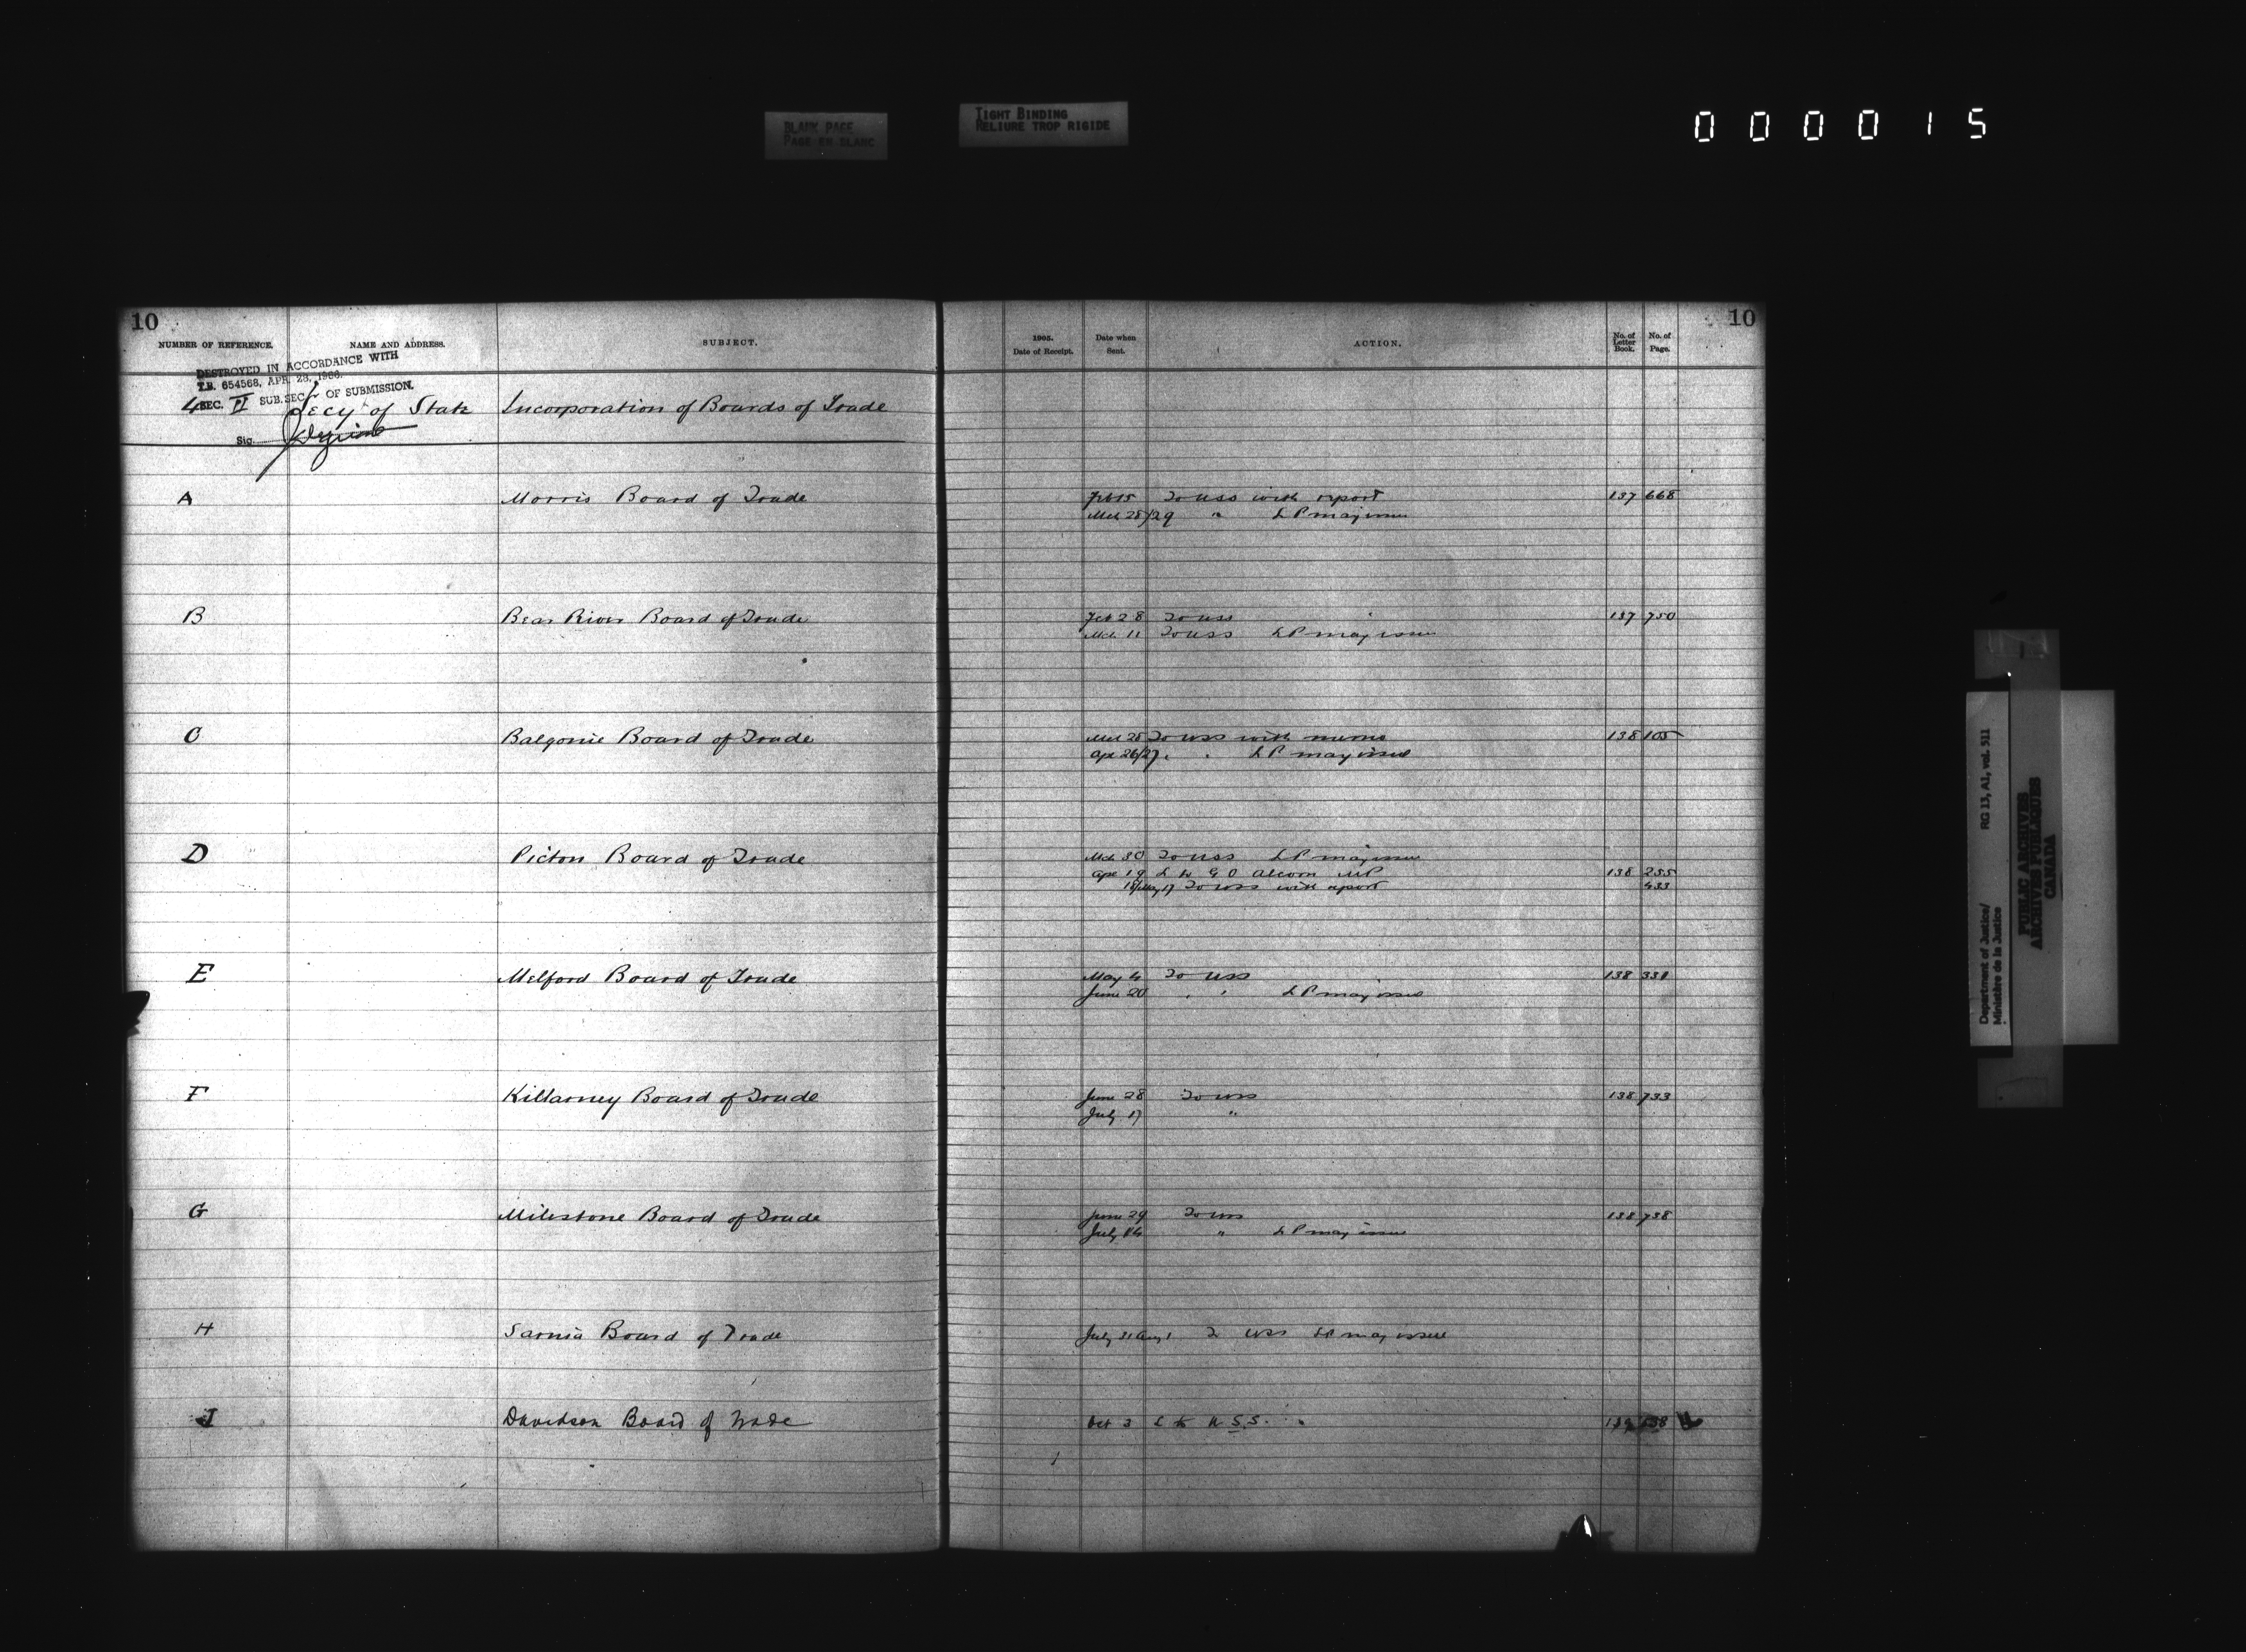 BLANK PAGE
PAGE EN BLANC
TIGHT BINDING
RELIURE TROP RIGIDE
000015
10
10
NUMBER OF REFERENCE. NAME AND ADDRESS. SUBJECT. 1905. Date of Receipt. Date when Sent. ACTION. No. of Letter Book. No. of Page.
DESTROYED IN ACCORDANCE WITH
T.B. 654568, APR. 28, 1966.
SEC. II SUB.SEC. OF SUBMISSION.
Secy of State Incorporation of Boards of Trade
Sig.
A Morris Board of Trade Feb 15 To USS with report 137 668
Mch 28/29 " L P may issue
B Bear River Board of Trade Feb 28 To USS 137 750
Mch 11 To USS L P may issue
C Balgonie Board of Trade Mch 28 To USS with memo 138 105
Apr 26/27 " " L P may issue
D Picton Board of Trade Mch 30 To USS L P may issue
Apr 19 L to G O Alcorn MP 138 235
18/May 17 To USS with report 433
E Melford Board of Trade May 4 To USS 138 331
June 20 " " L P may issue
F Killarney Board of Trade June 28 To USS 138 733
July 17 "
G Milestone Board of Trade June 29 To USS 138 738
July 14 " L P may issue
H Sarnia Board of Trade July 31 Aug 1 To USS LP may issue
J Davidson Board of Trade Oct 3 L to U.S.S.
Department of Justice/ RG 13, A1, vol. 511
Ministère de la Justice
PUBLIC ARCHIVES
ARCHIVES PUBLIQUES
CANADA